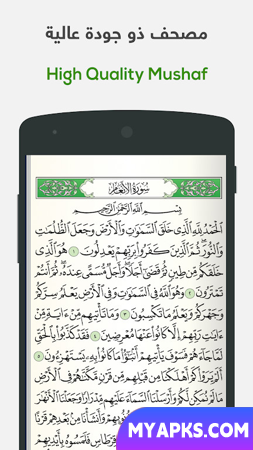 مصحف ذو جودة عالية
High Quality Mushaf
سُورَةُ الأَنْعَامِ
بِسْمِ اللَّهِ الرَّحْمَٰنِ الرَّحِيمِ
الْحَمْدُ لِلَّهِ الَّذِي خَلَقَ السَّمَٰوَٰتِ وَالْأَرْضَ وَجَعَلَ الظُّلُمَٰتِ
وَالنُّورَ ثُمَّ الَّذِينَ كَفَرُوا بِرَبِّهِمْ يَعْدِلُونَ ١ هُوَ الَّذِي
خَلَقَكُم مِّن طِينٍ ثُمَّ قَضَىٰ أَجَلًا وَأَجَلٌ مُّسَمًّى عِندَهُ ثُمَّ أَنتُمْ
تَمْتَرُونَ ٢ وَهُوَ اللَّهُ فِي السَّمَٰوَٰتِ وَفِي الْأَرْضِ يَعْلَمُ سِرَّكُمْ
وَجَهْرَكُمْ وَيَعْلَمُ مَا تَكْسِبُونَ ٣ وَمَا تَأْتِيهِم مِّنْ ءَايَةٍ مِّنْ
ءَايَٰتِ رَبِّهِمْ إِلَّا كَانُوا عَنْهَا مُعْرِضِينَ ٤ فَقَدْ كَذَّبُوا بِالْحَقِّ
لَمَّا جَاءَهُمْ فَسَوْفَ يَأْتِيهِمْ أَنۢبَٰٓؤُا مَا كَانُوا بِهِ يَسْتَهْزِءُونَ ٥
أَلَمْ يَرَوْا كَمْ أَهْلَكْنَا مِن قَبْلِهِم مِّن قَرْنٍ مَّكَّنَّٰهُمْ فِي الْأَرْضِ
مَا لَمْ نُمَكِّن لَّكُمْ وَأَرْسَلْنَا السَّمَاءَ عَلَيْهِم مِّدْرَارًا وَجَعَلْنَا الْأَنْهَٰرَ
وَأَنشَأْنَا مِنۢ بَعْدِهِمْ قَرْنًا
قِرْطَاسٍ فَلَمَسُوهُ بِأَيْدِيهِمْ
MYAPKS.COM